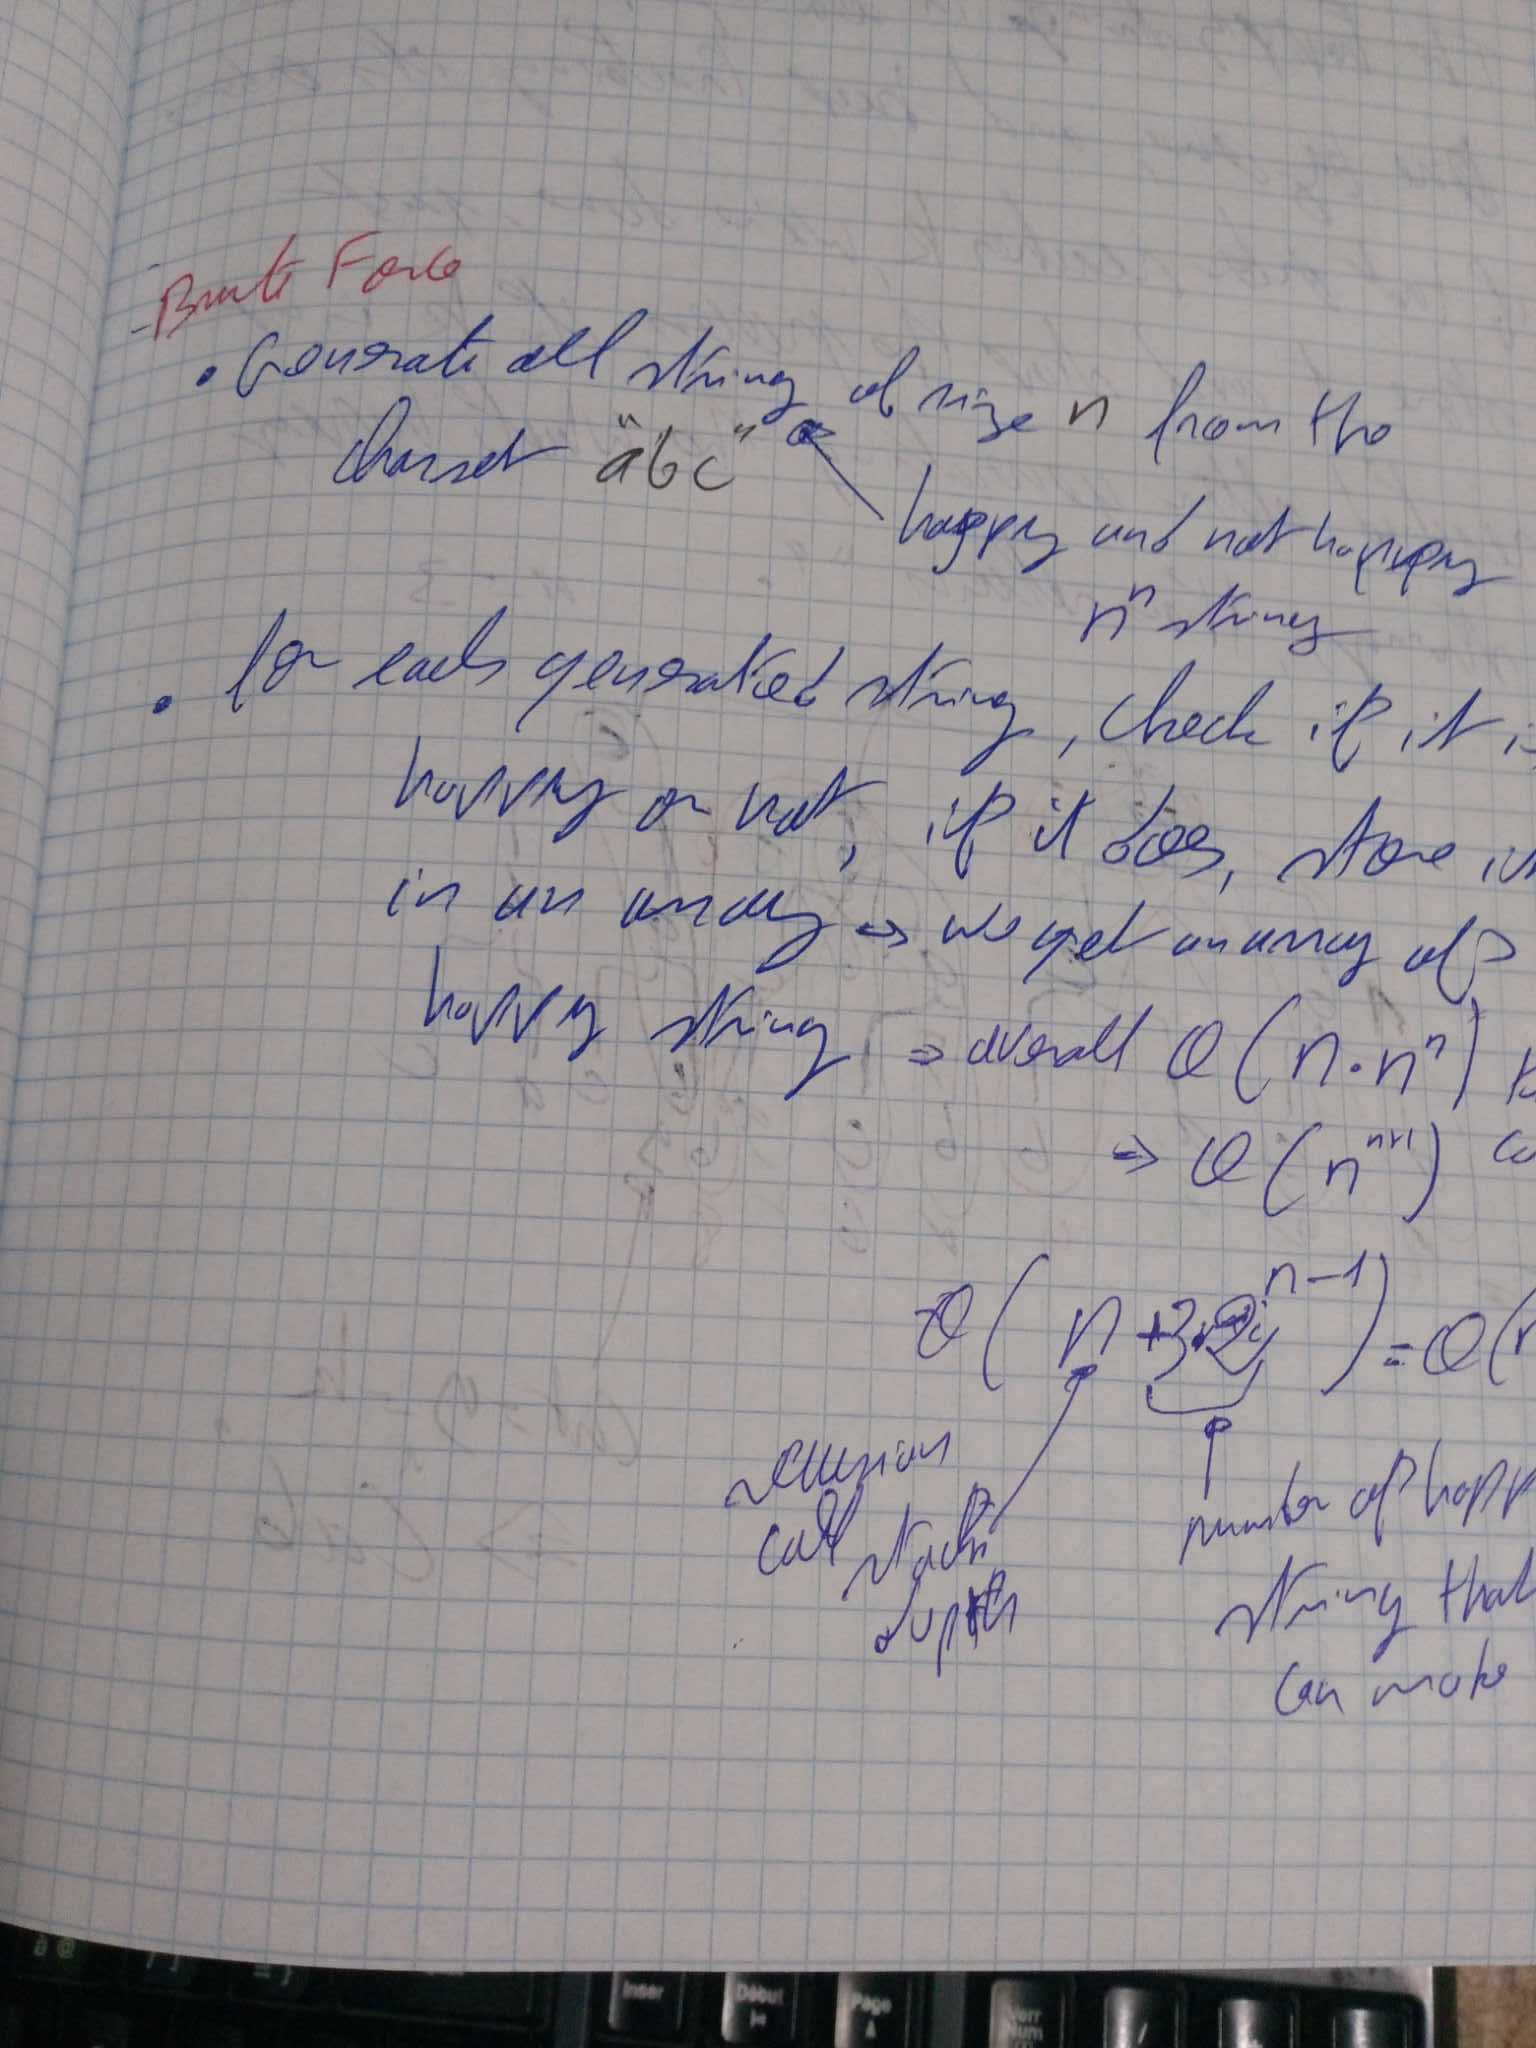 - Brute Force
• Generate all string of size n from the
charset "abc"
happy and not happy
nⁿ string
• for each generatied string, check if it is
happy or not, if it does, store it
in an array => we get an array of
happy string => overall O(n·nⁿ)
=> O(nⁿ⁺¹)
O(n + 3·2ⁿ⁻¹) = O(
recursion
call stack
depth
number of happ
string that
can make
Inser
Début
Page
Verr
Num
/